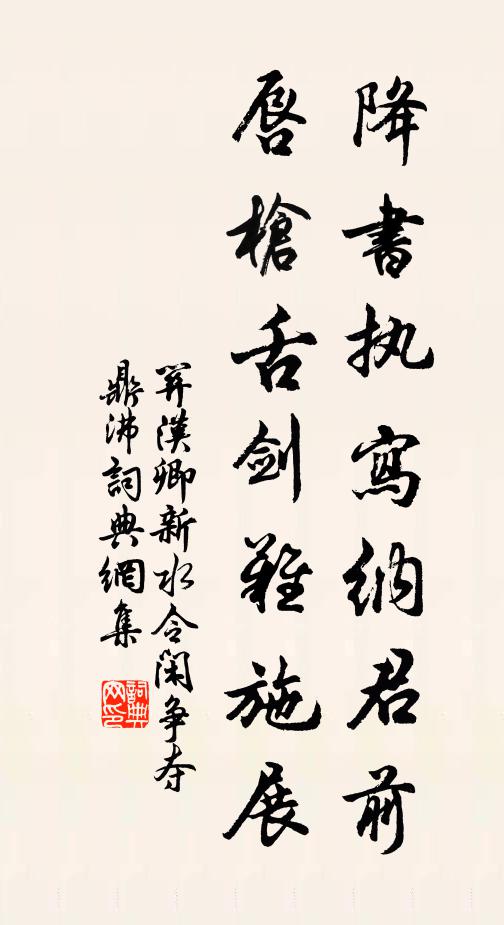 降書执寫納君前
唇槍舌劍難施展
關漢卿新水令閑争夺
鼎沸詞典網集
詞典网印